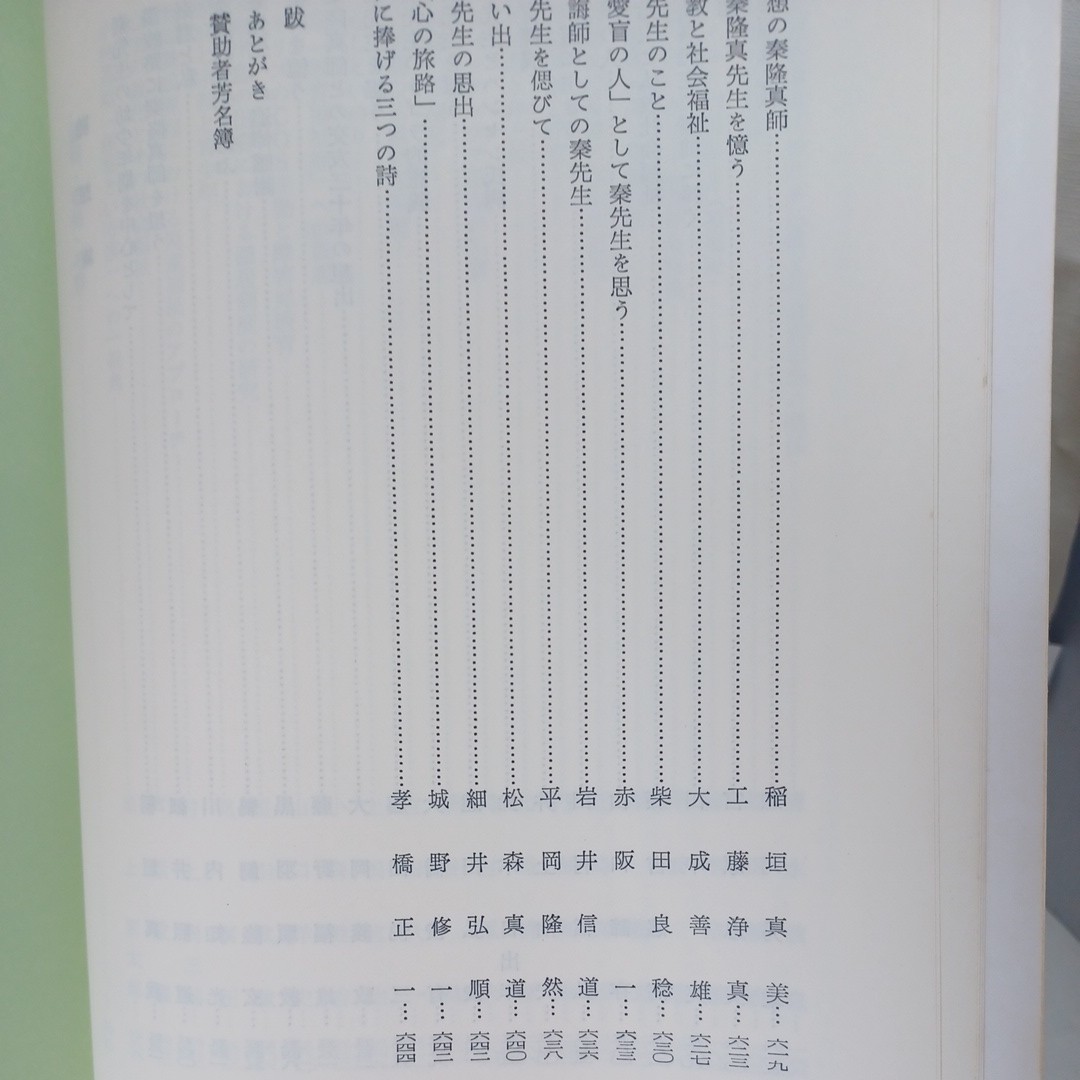 想の秦隆真師……稲垣真美…六一九
秦隆真先生を憶う……工藤浄真…六二三
教と社会福祉……大成善雄…六二七
先生のこと……柴田良稔…六三〇
愛盲の人」として秦先生を思う……赤阪一…六三三
誨師としての秦先生……岩井信道…六三六
先生を偲びて……平岡隆然…六三八
い出……松森真道…六四〇
先生の思出……細井弘順…六四二
心の旅路」……城野修一…六四二
に捧げる三つの詩……孝橋正一…六四四
跋
あとがき
賛助者芳名簿